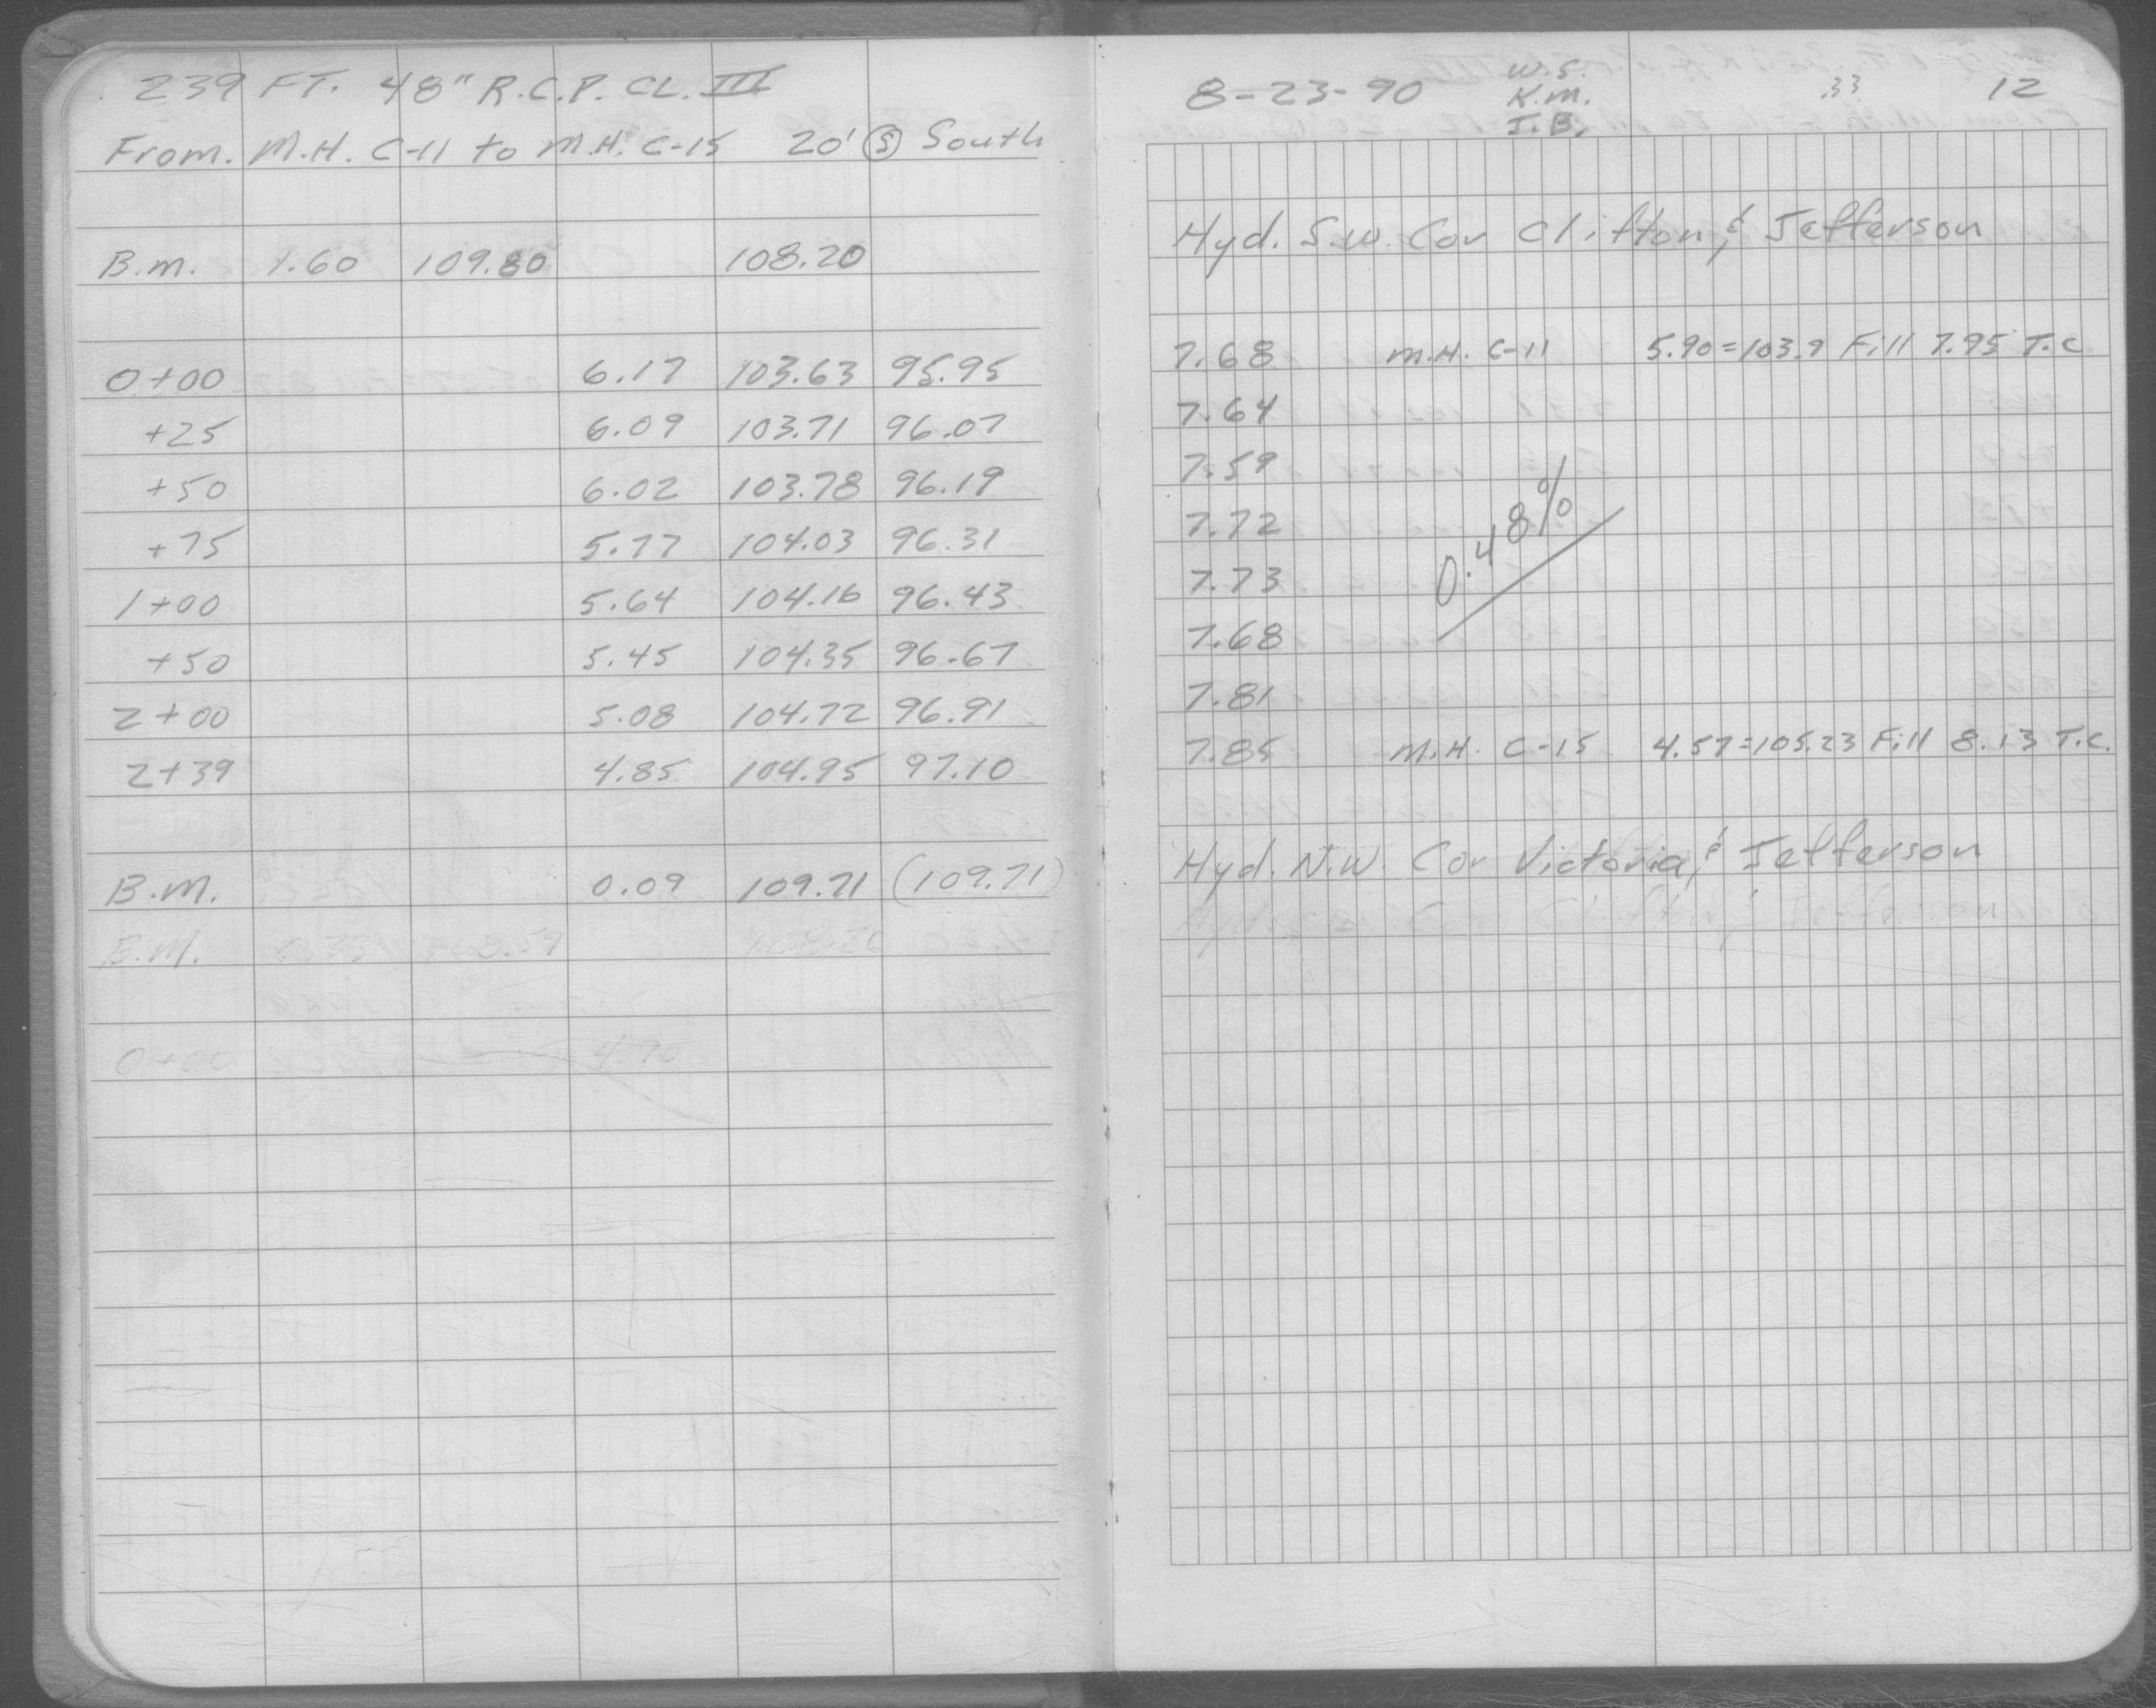 239 FT. 48" R.C.P. CL. III
From. M.H. C-11 to M.H. C-15 20' Ⓢ South
B.M. 1.60 109.80 108.20
0+00 6.17 103.63 95.95
+25 6.09 103.71 96.07
+50 6.02 103.78 96.19
+75 5.77 104.03 96.31
1+00 5.64 104.16 96.43
+50 5.45 104.35 96.67
2+00 5.08 104.72 96.91
2+39 4.85 104.95 97.10
B.M. 0.09 109.71 (109.71)
B.M.
0+00
8-23-90 W.S. 33 12
K.M.
J.B.
Hyd. S.W. Cor Clifton, & Jefferson
7.68 M.H. C-11 5.90=103.9 Fill 7.95 T.C
7.64
7.59
7.72
7.73
0.48%
7.68
7.81
7.85 M.H. C-15 4.57=105.23 Fill 8.13 T.C.
Hyd. N.W. Cor Victoria, & Jefferson